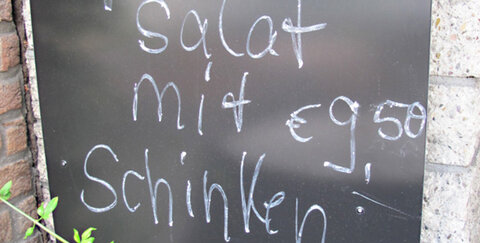 Salat
mit €9,50
Schinken